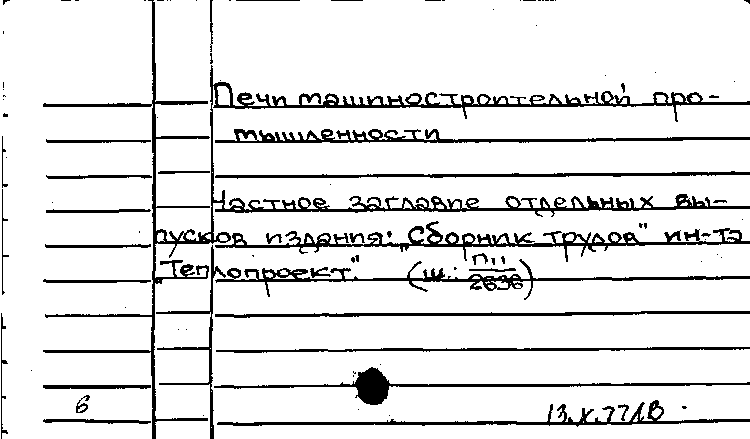 Печи машиностроительной про-
мышленности
Частное заглавие отдельных вы-
пусков издания: „Сборник трудов" ин-та
„Теплопроект." (ш.: П11/2636)
6
13.X.77